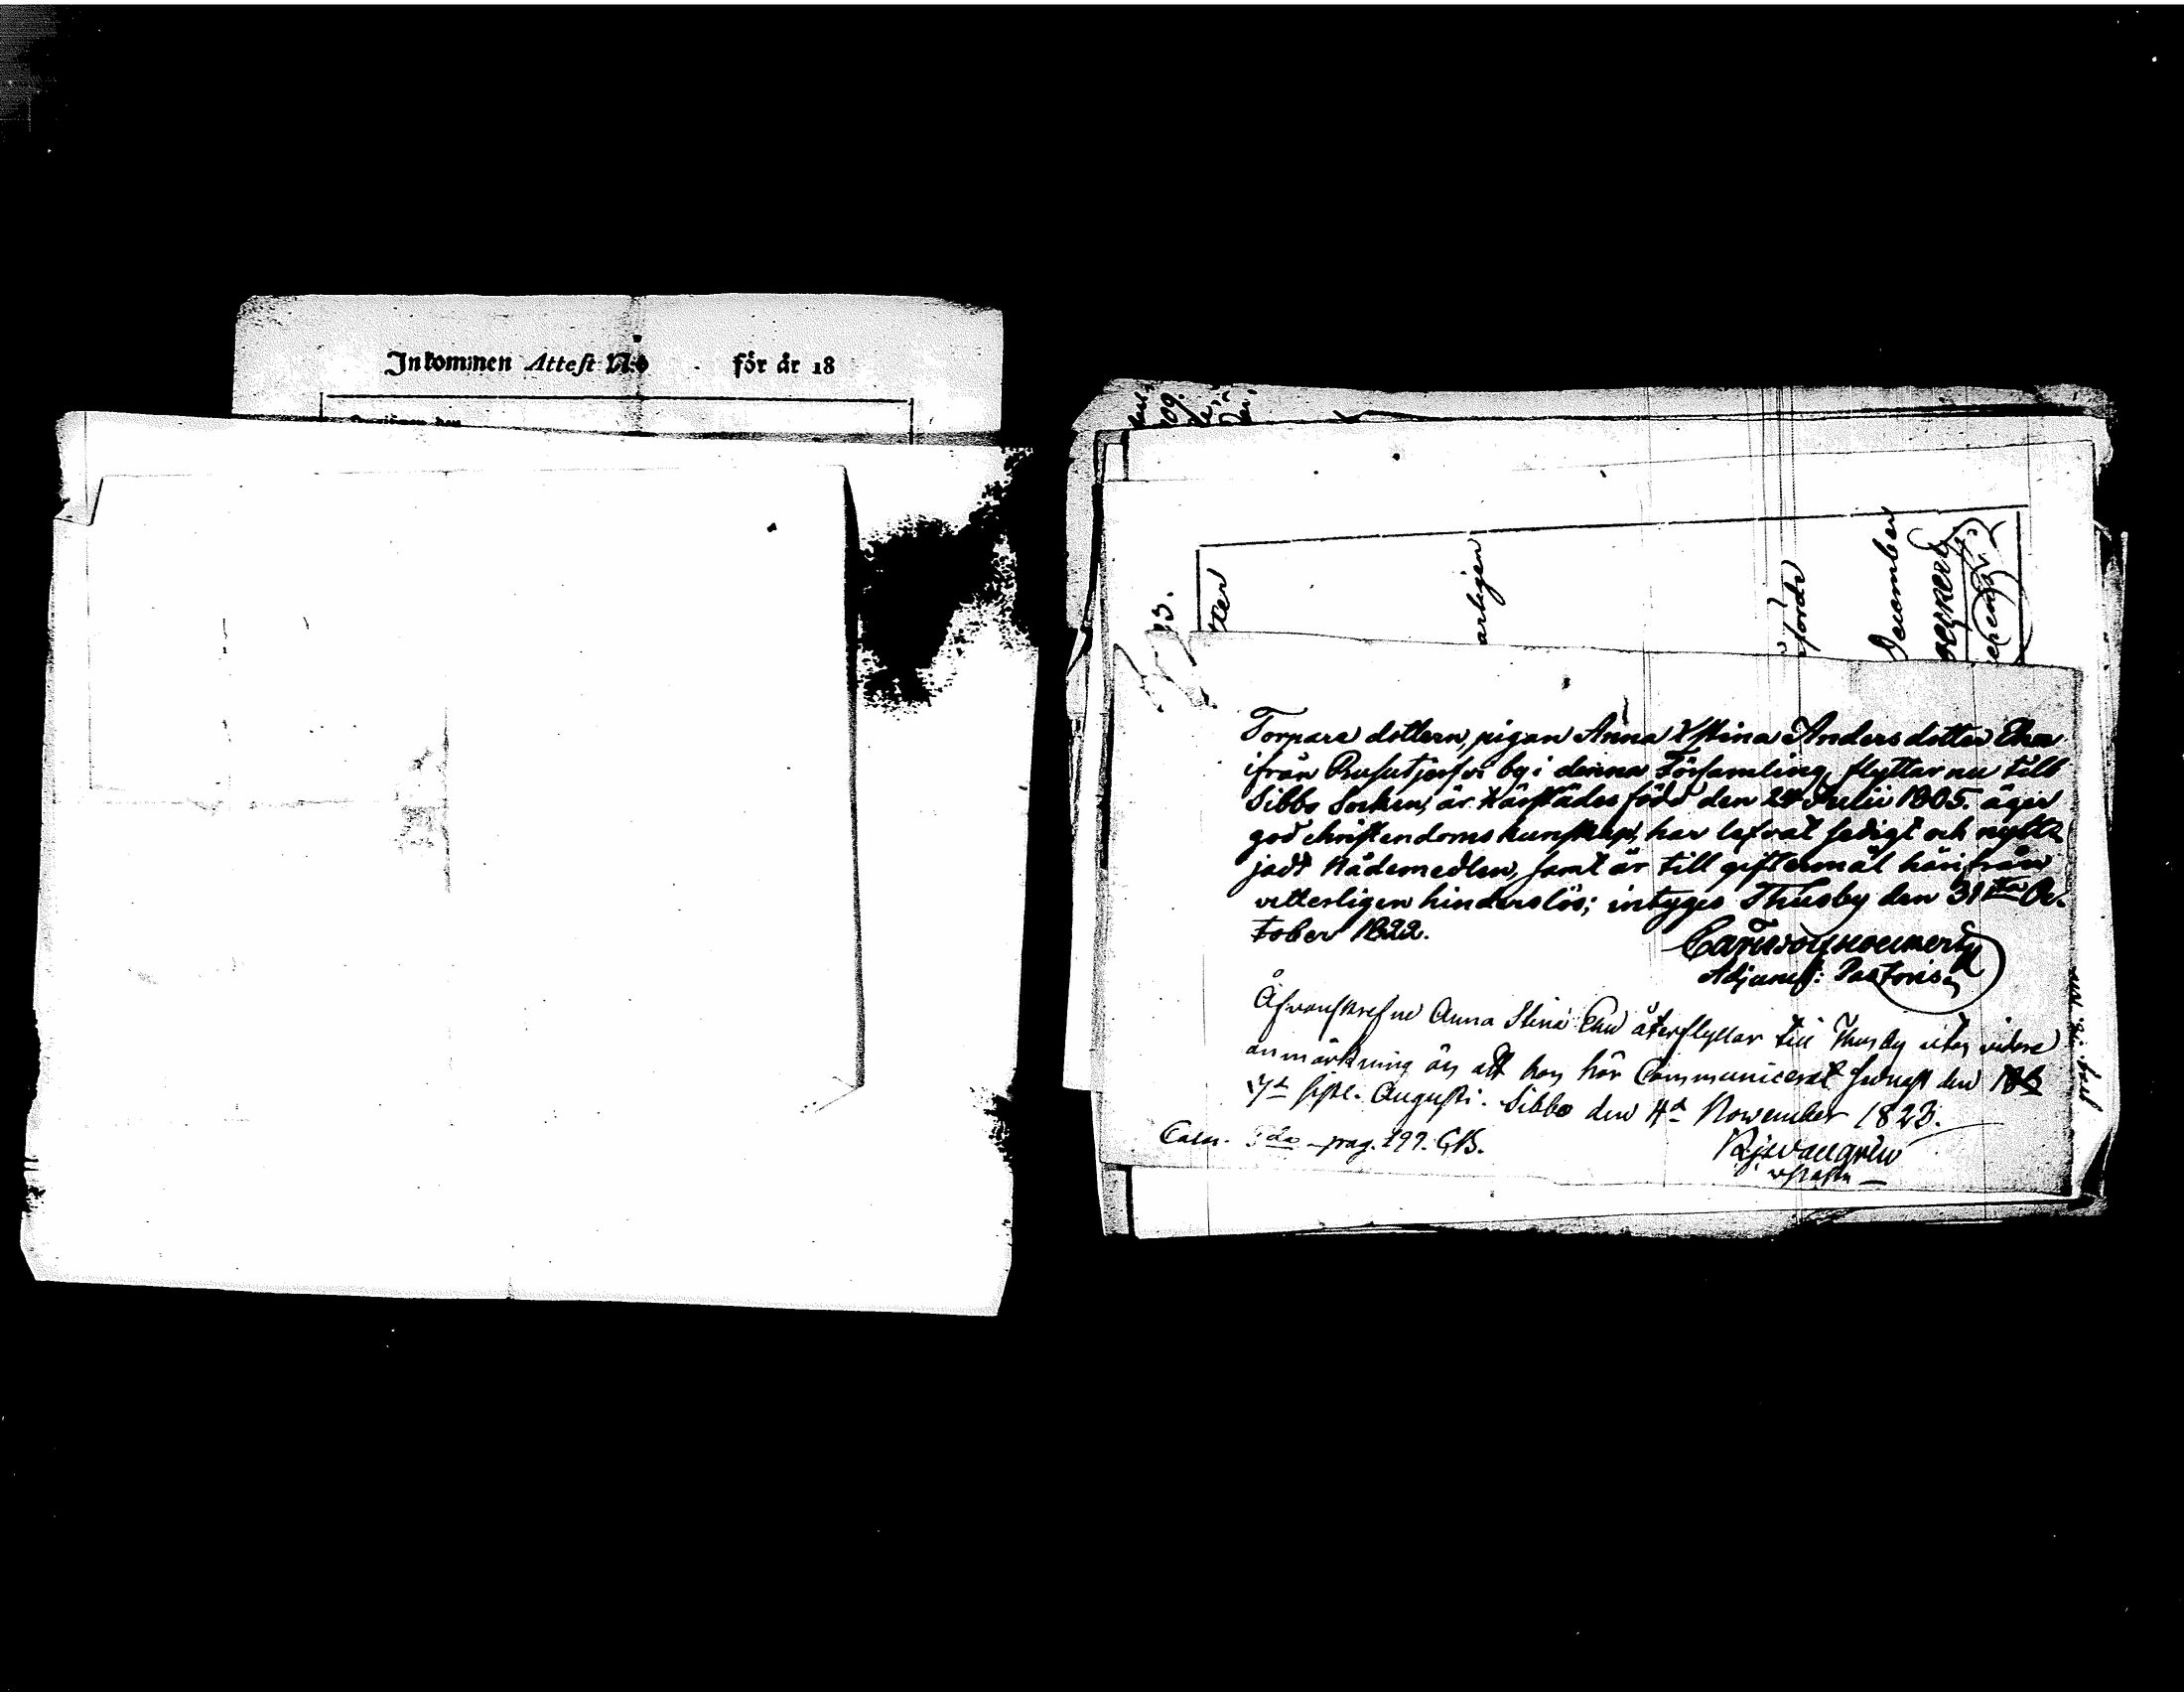 Inkommen Attest N:o för år 18
09.
13.
arligen
December
Torpare dottern, pigan Anna Xstina Andersdotter Ehn
ifrån Rusutjerfvi by i denna Församling, flyttar nu till
Sibbo Socken; är härstädes född den 24 Julii 1805. äger
god christendoms kunskap, har lefvat sedigt och nytt-
jadt Nådemedlen, samt är till giftermål härifrån
vetterligen hinderslös; intyges Thusby den 31 Oc-
tober 1822.
Adjunct: Pastoris
Åfvanskrefne Anna Stina Ehn återflyttar till Thusby utan vidare
anmärkning än att hon här Communicerat sednast den
sistl. Augusti. Sibbo den 4 November 1823.
pag. 199.